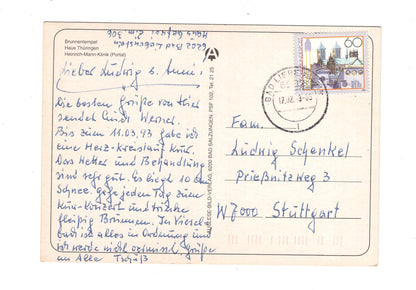 Brunnentempel
Haus Thüringen
Heinrich-Mann-Klinik (Portal)
6202 Bad Liebenstein
Haus
Zim. 306
Lieber Ludwig u. Anni!
Die besten Grüße von hier
sendet Euch Werner.
Bis zum 11.03.93 habe ich
eine Herz-Kreislauf Kur.
Das Wetter und Behandlung
sind sehr gut. Es liegt 10 cm
Schnee. Gehe jeden Tag zum
Kur-Konzert und trinke
fleißig Brunnen. In Viesel-
bach ist alles in Ordnung und
ich werde nicht vermisst. Grüße
an Alle
AUSLESE-BILD-VERLAG, 6200 BAD SALZUNGEN, PSF 102, Tel. 21 25
60
BAD LIEBEN
17.02.93
Fam.
Ludwig Schenkel
Prießnitzweg 3
W7000 Stuttgart